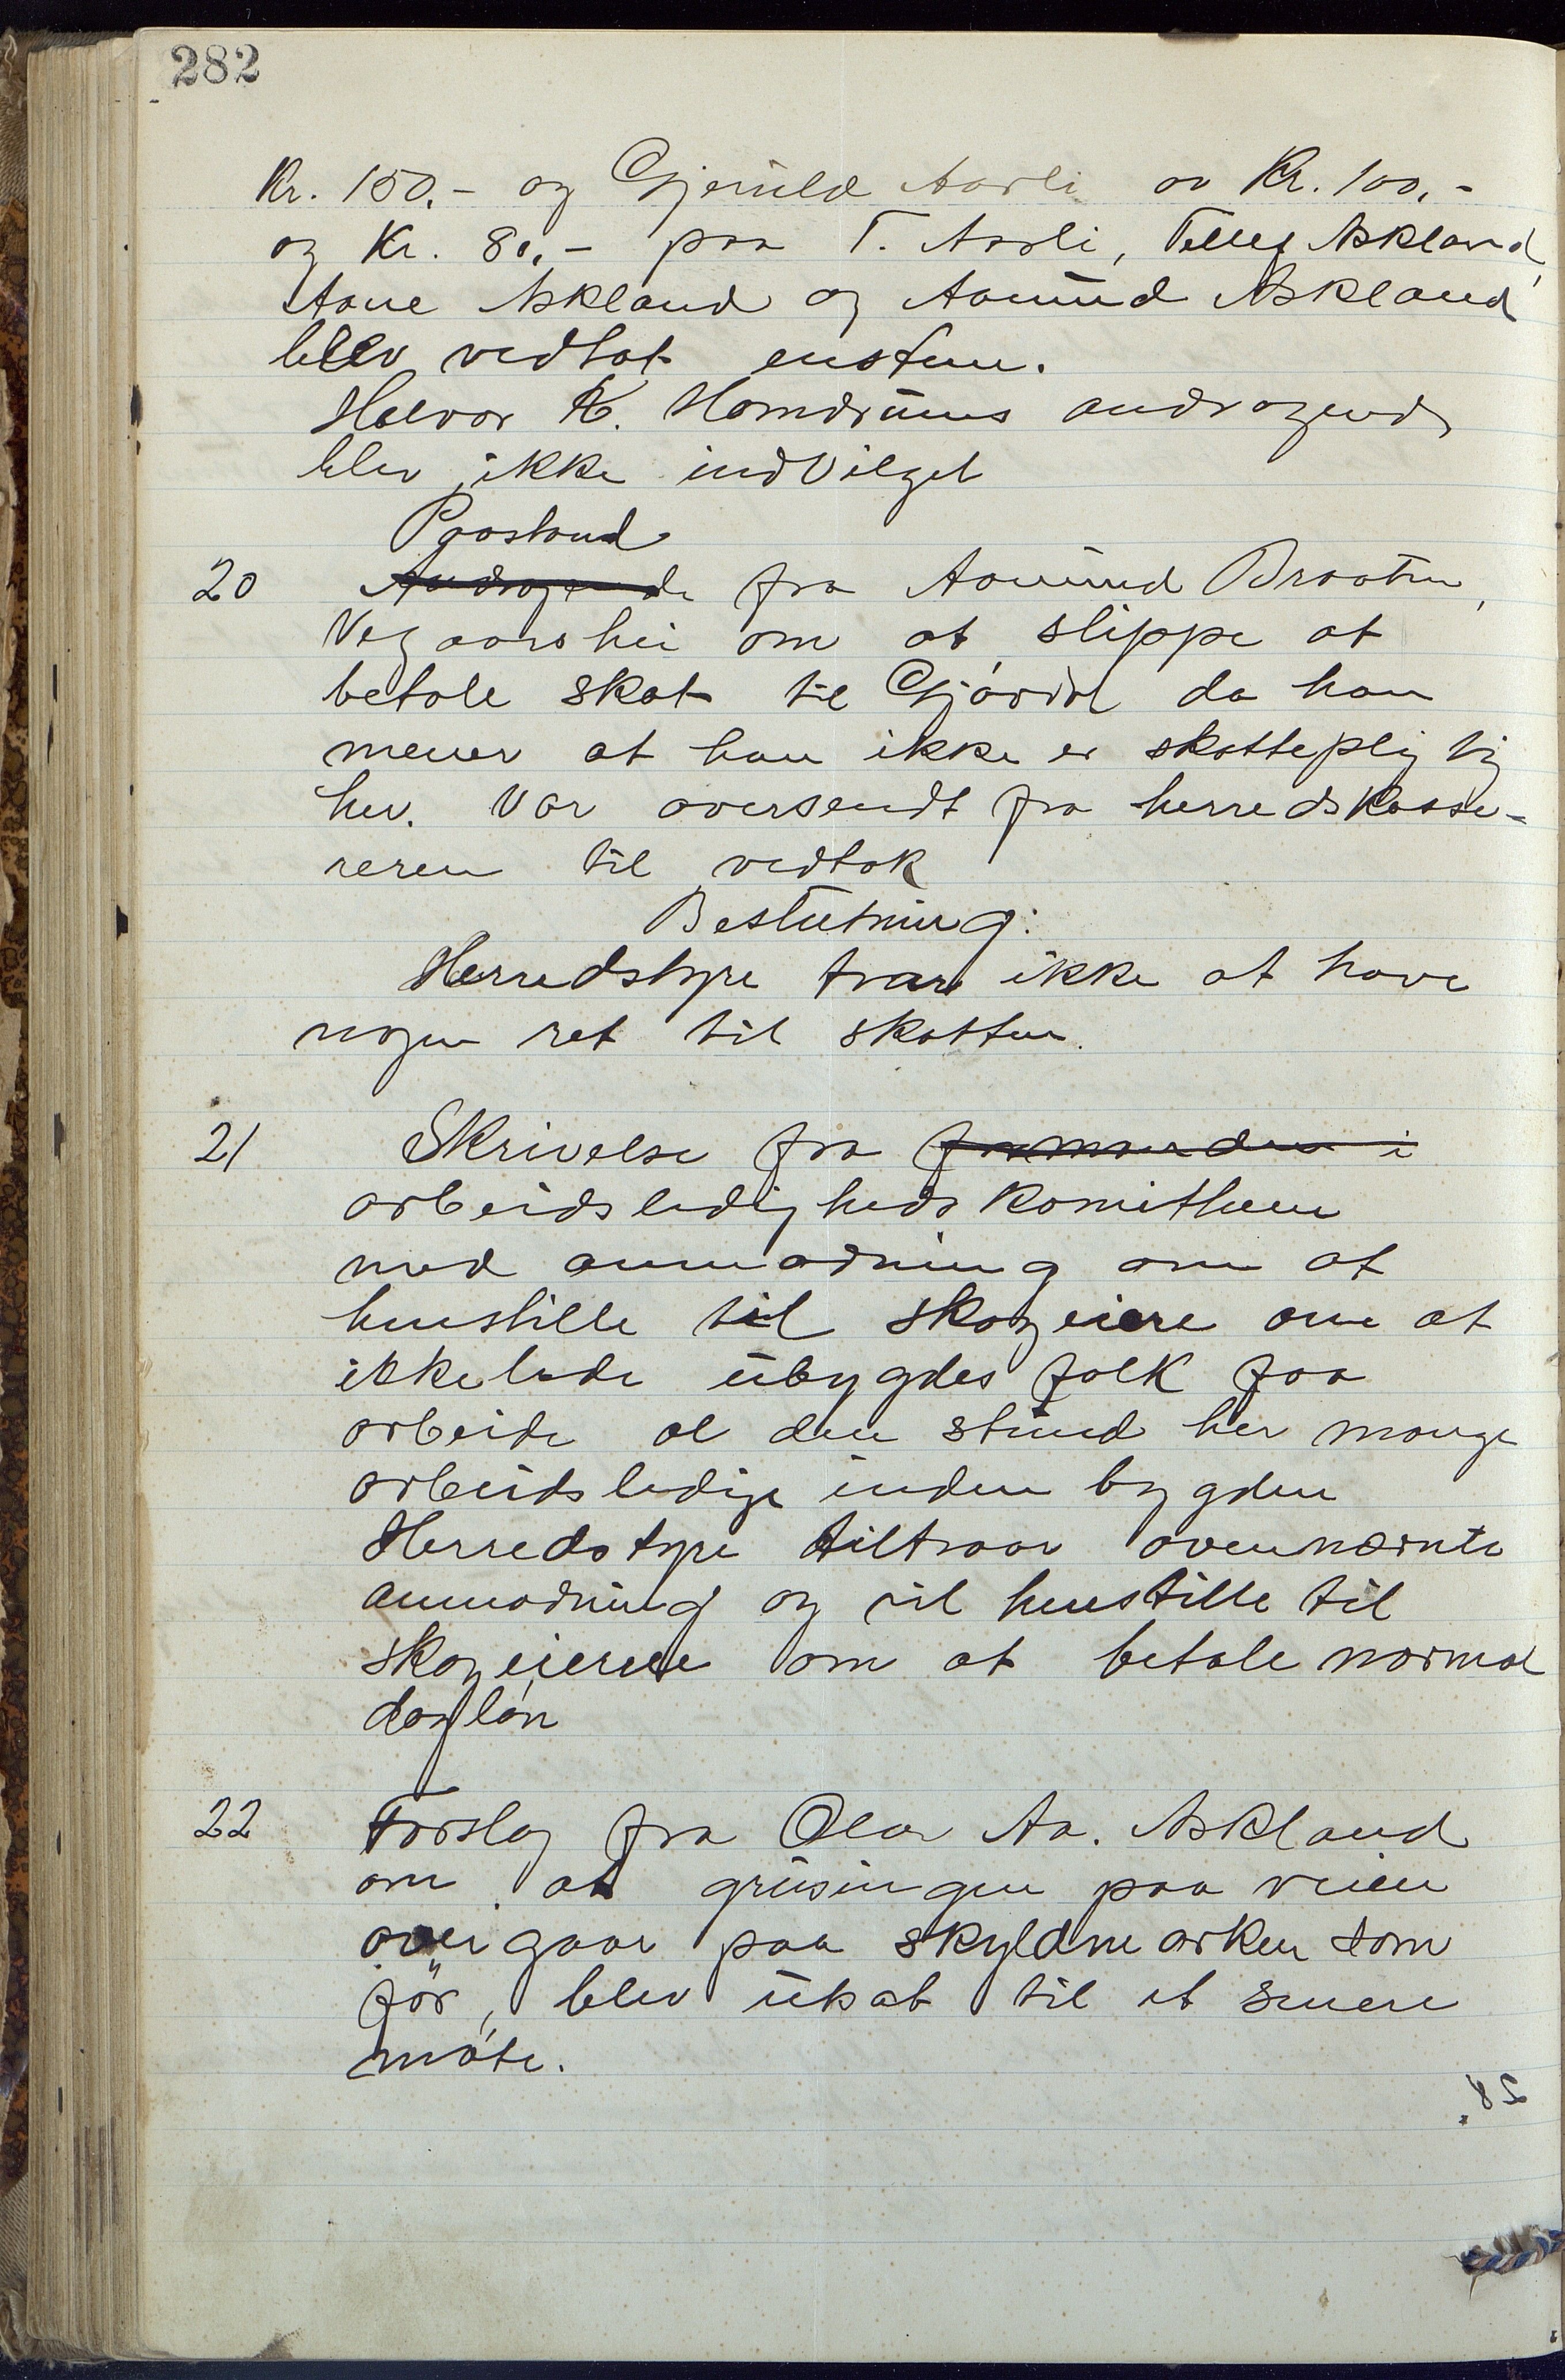 282
Kr. 150.- og Gjeruld Aasli av Kr. 100.-
og Kr. 80.- paa T. Aasli, Tellef Askland,
Aane Askland og Aamund Askland
blev vedtat enstem.
Halvor K. Homdrums andragende
blev ikke indvilget
Paastand
20 Andragende fra Aamund Braaten,
Vegaarshei om at slippe at
betale skat til Gjövdal da han
mener at han ikke er skattepligtig
her. Var oversendt fra herredskasse-
reren til vedtak
Beslutning:
Herredstyre trær ikke at have
nogen ret til skatten.
21 Skrivelse fra formanden i
arbeidsledigheds komitheen
med anmodning om at
henstille til skogeiere om at
ikke lade übygdes folk faa
arbeide al den stund her mange
arbeidsledige inden bygden
Herredstyre tiltraar ovennævnte
anmodning og vil henstille til
skogeierne om at betale normal
daglön
22 Forslag fra Olav Aa. Askland
om at grüsingen paa veien
overgaar paa skyldmarken som
för, blev utsat til et senere
möte.